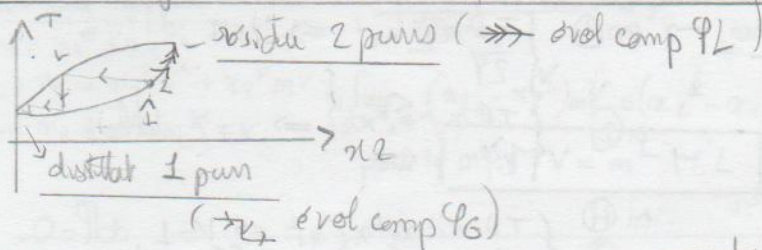 T
V
résidu 2 purs (→→→ évol comp φL)
L
I
x2
distillat 1 pur
(→ V→ évol comp φG)